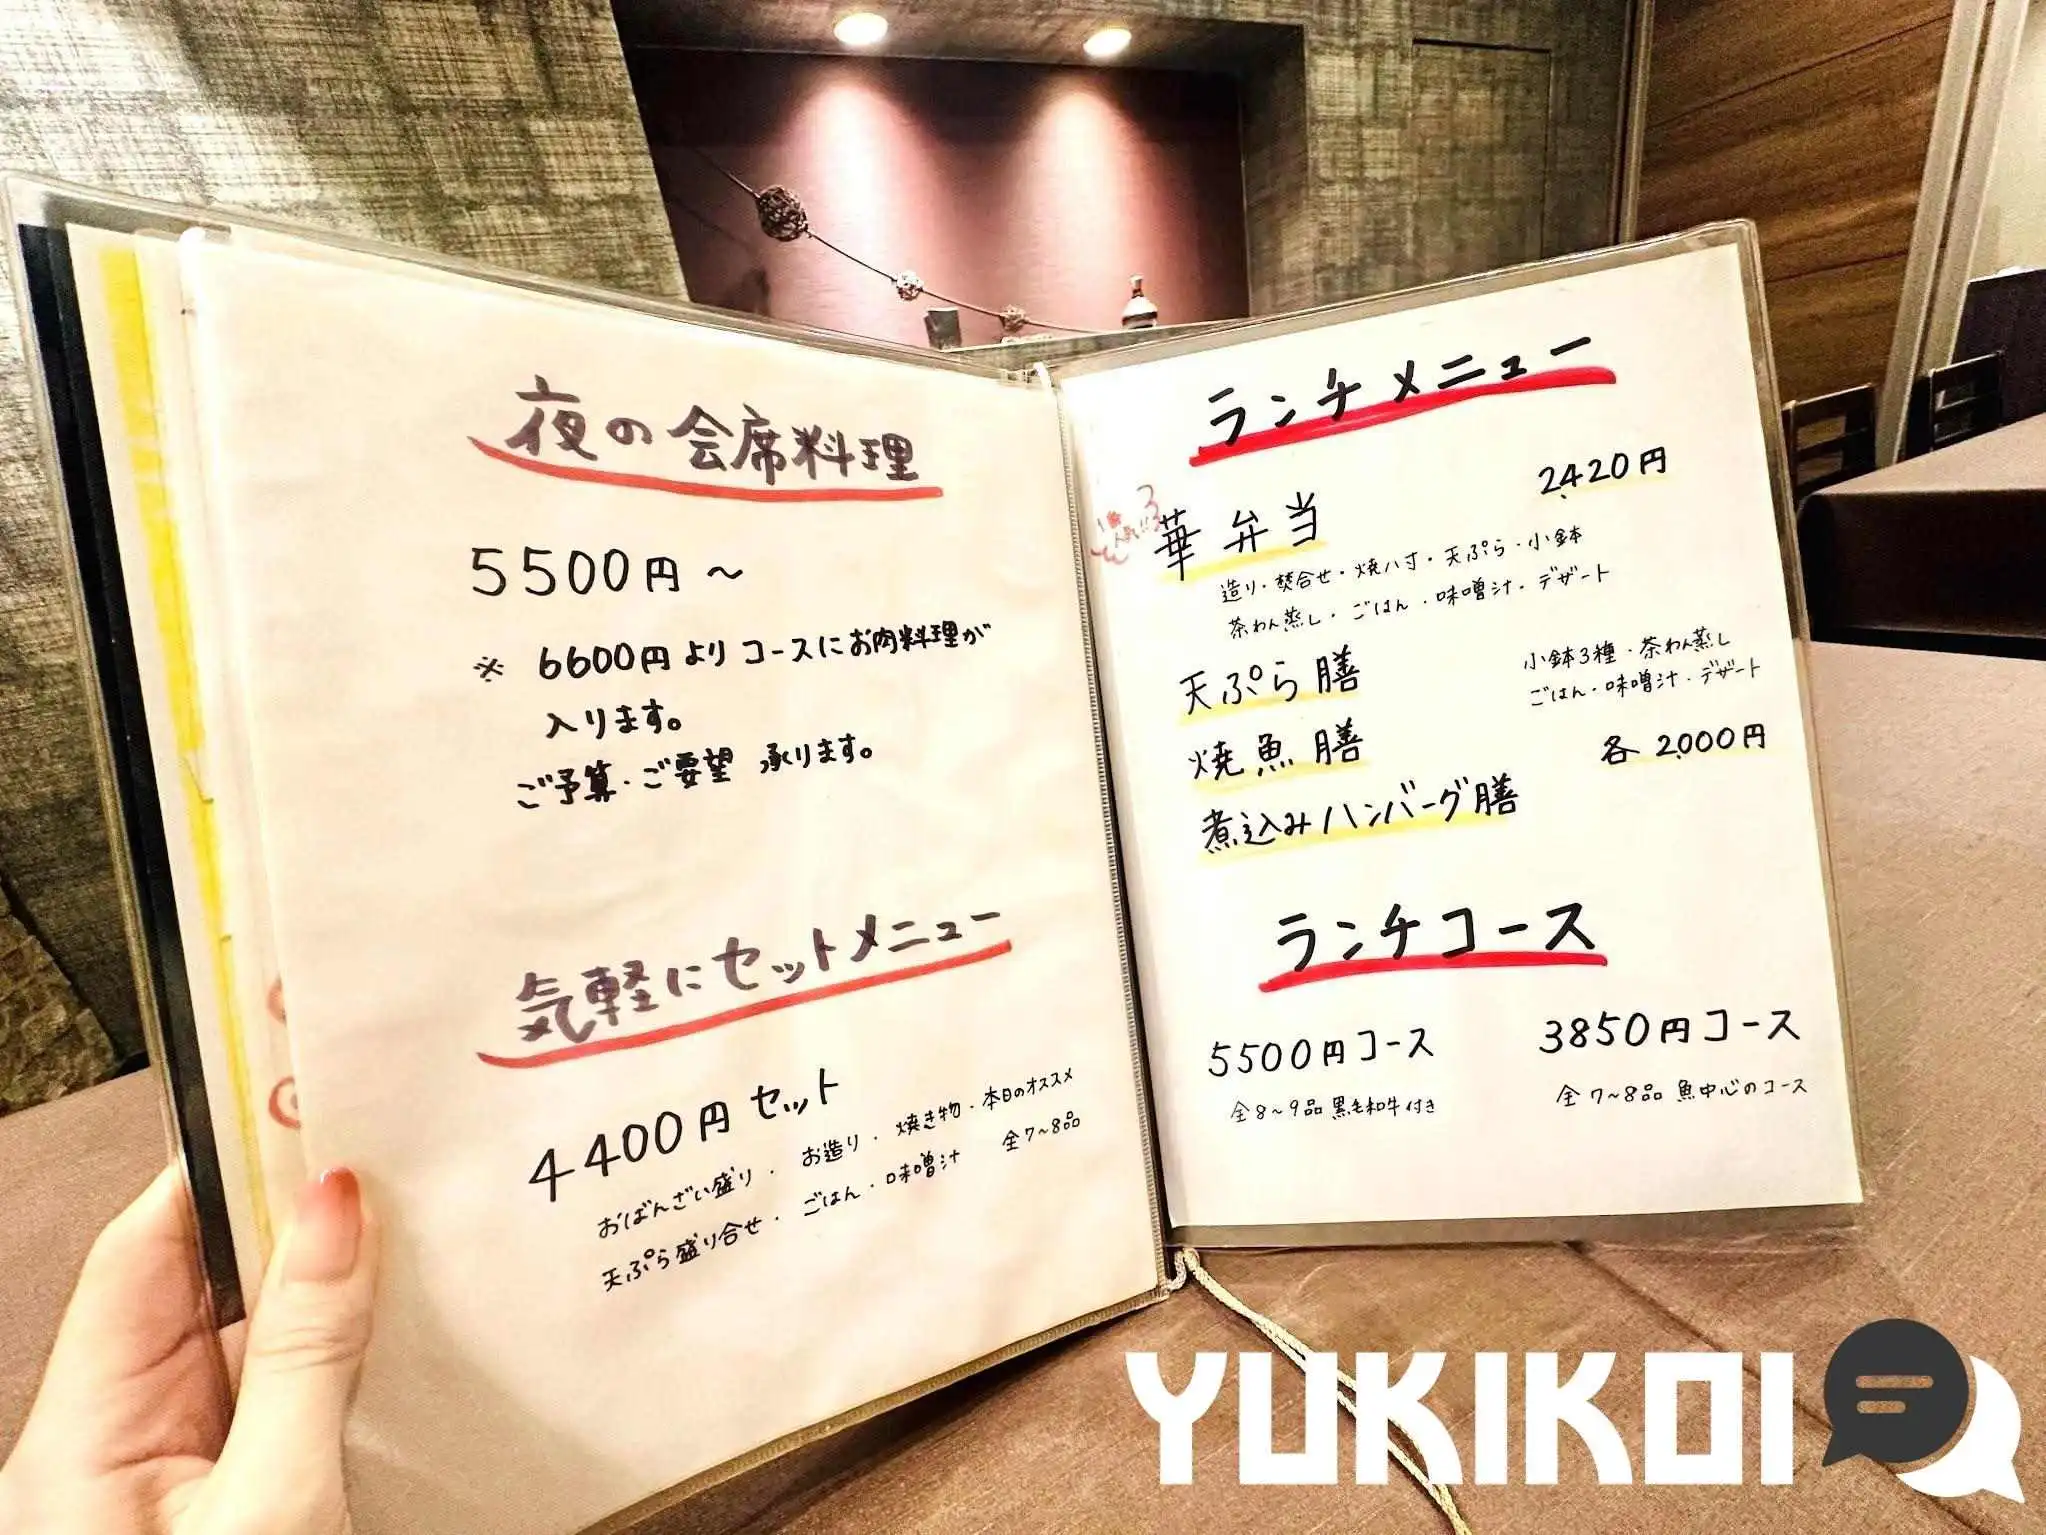 夜の会席料理
5500円〜
※ 6600円よりコースにお肉料理が
入ります。
ご予算・ご要望 承ります。
気軽にセットメニュー
4400円セット
おばんざい盛り・お造り・焼き物・本日のオススメ
天ぷら盛り合せ・ごはん・味噌汁 全7~8品
ランチメニュー
華弁当 2,420円
造り・焚合せ・焼八寸・天ぷら・小鉢
茶わん蒸し・ごはん・味噌汁・デザート
天ぷら膳
焼魚膳
煮込みハンバーグ膳
小鉢3種・茶わん蒸し
ごはん・味噌汁・デザート
各 2,000円
ランチコース
5500円コース
全8~9品 黒毛和牛付き
3850円コース
全7~8品 魚中心のコース
YUKIKOI